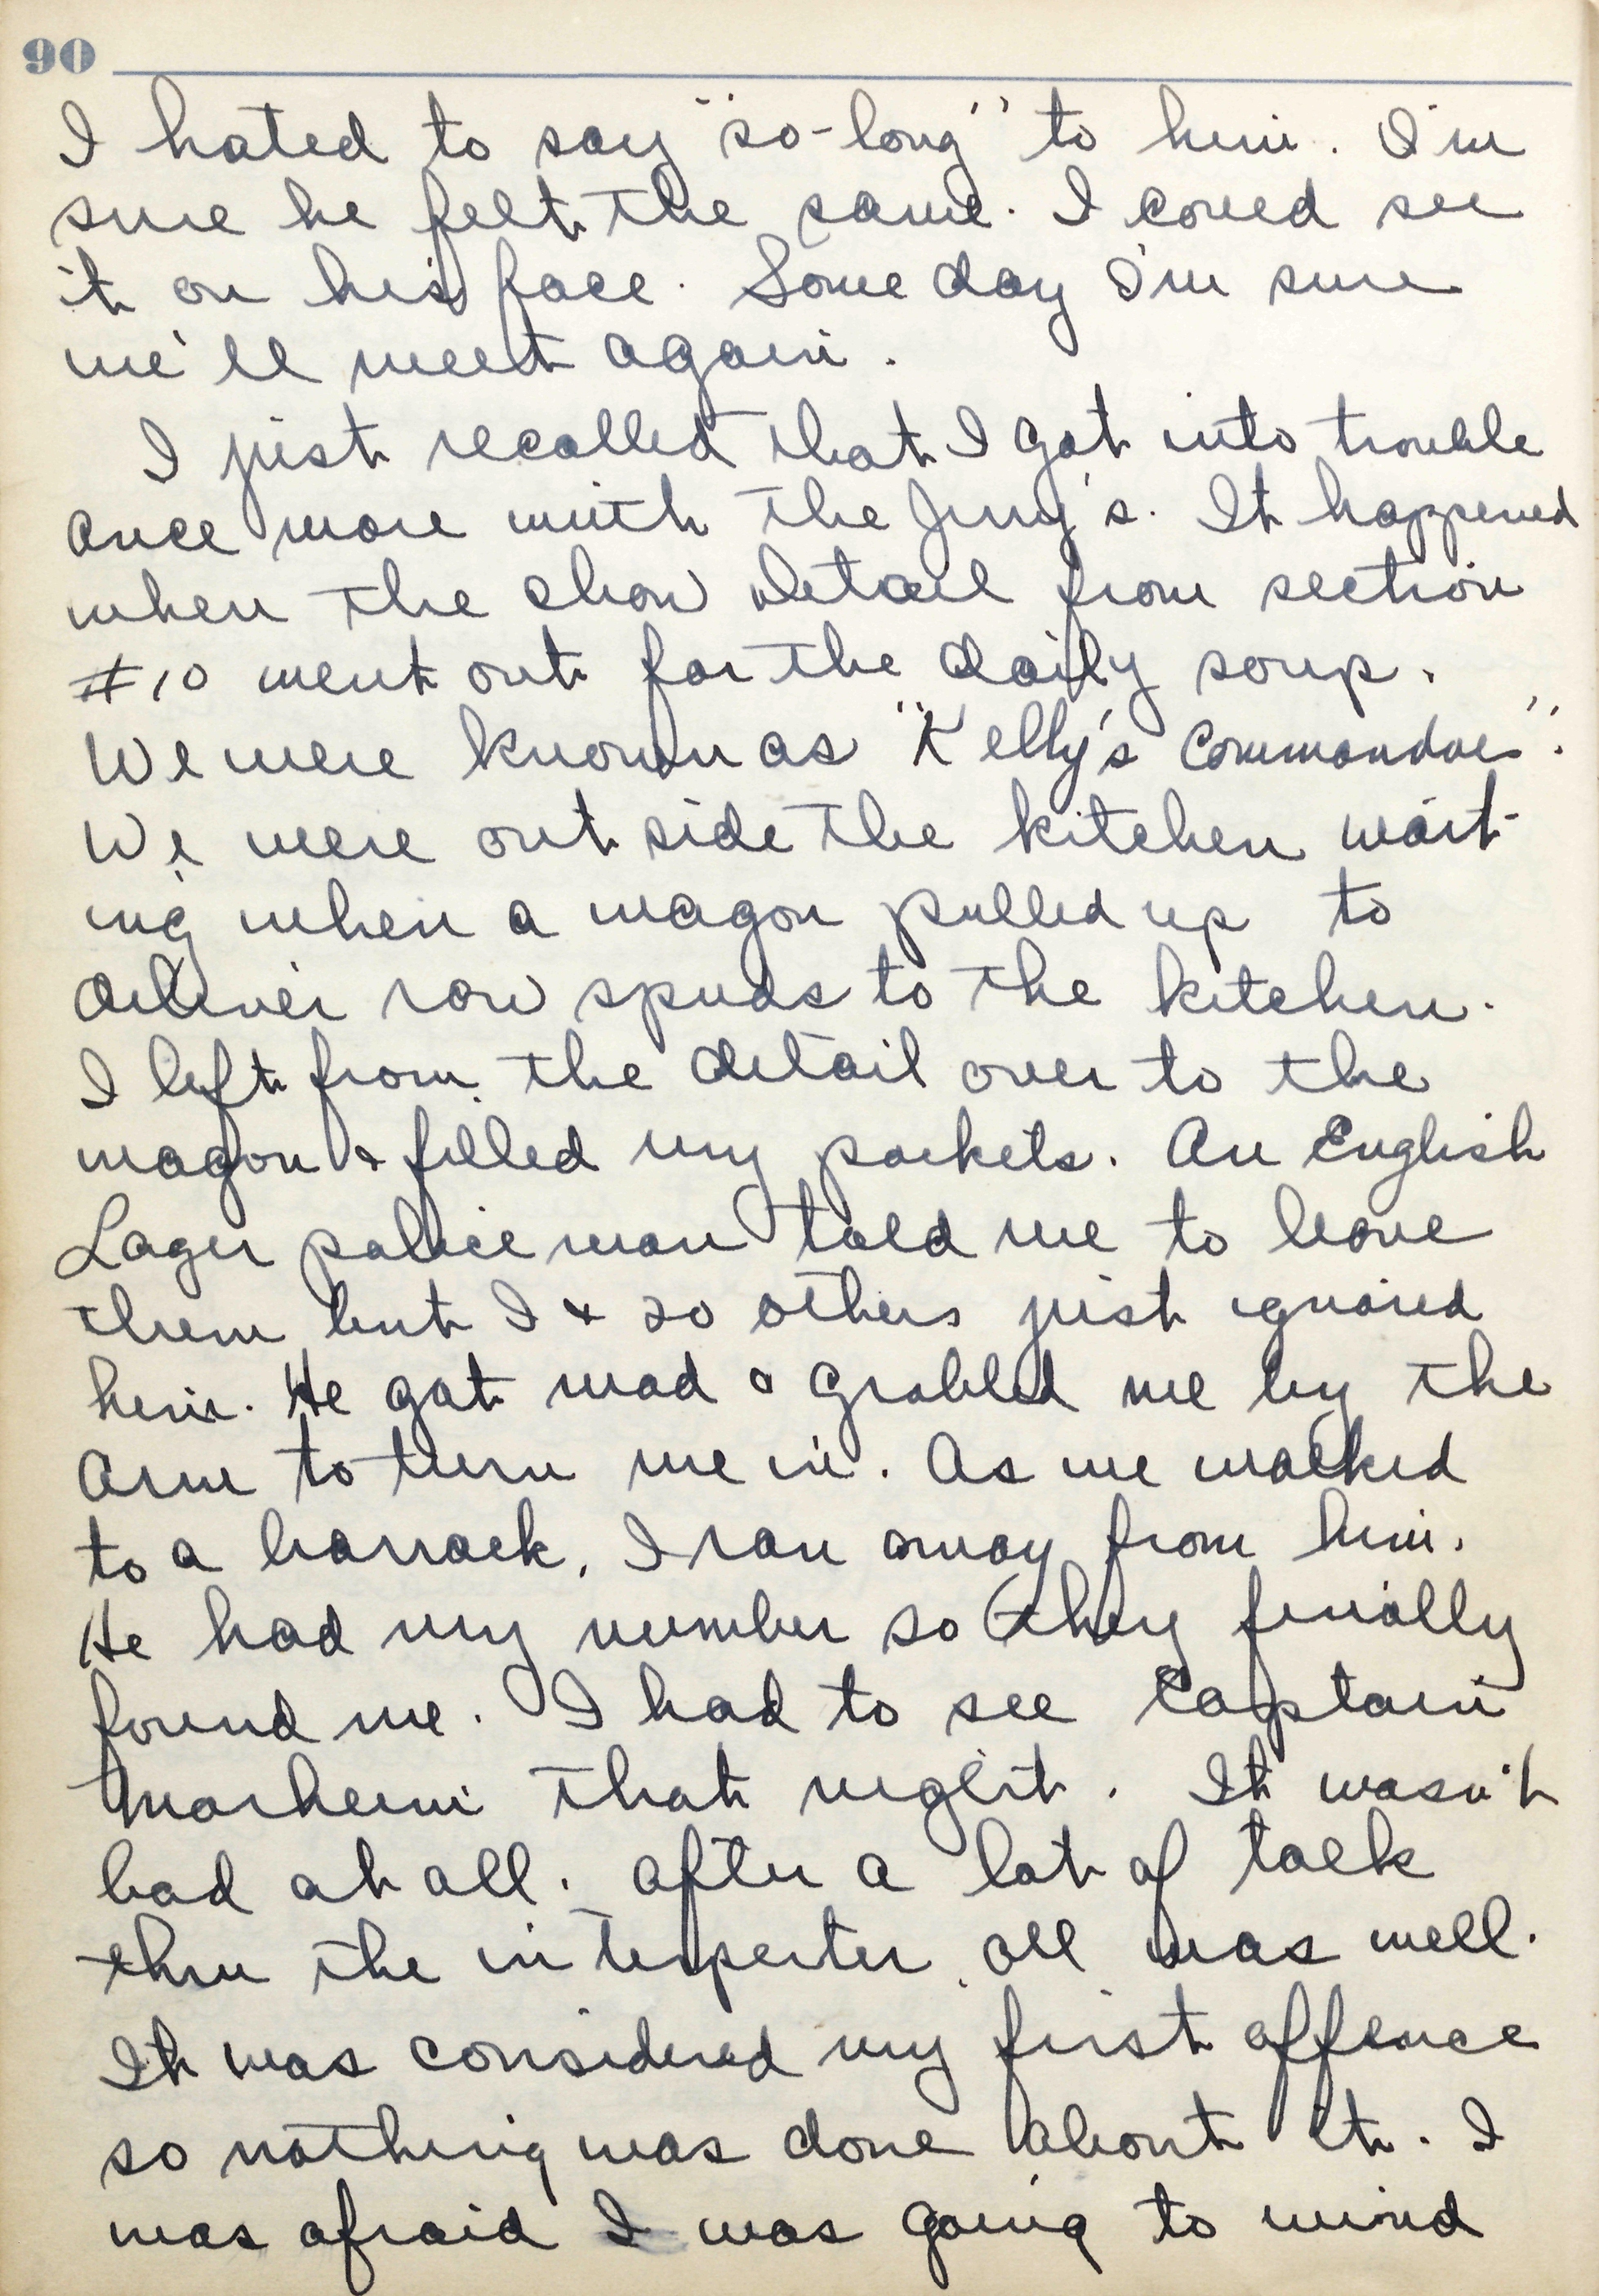 90
I hated to say "so-long" to him. I'm
sure he felt the same. I could see
it on his face. Some day I'm sure
we'll meet again.
I just recalled that I got into trouble
once more with the Jerry's. It happened
when the chow detail from section
#10 went out for the daily soup.
We were known as "Kelly's Commandoes".
We were out side the kitchen wait-
ing when a wagon pulled up to
deliver raw spuds to the kitchen.
I left from the detail over to the
wagon & filled my pockets. An English
Lager police man told me to leave
them but I & 20 others just ignored
him. He got mad & grabbed me by the
arm to turn me in. As we walked
to a barrack, I ran away from him.
He had my number so they finally
found me. I had to see Captain
that night. It wasn't
bad at all. After a lot of talk
thru the interperter, all was well.
It was considered my first offence
so nothing was done about it. I
was afraid I was going to wind